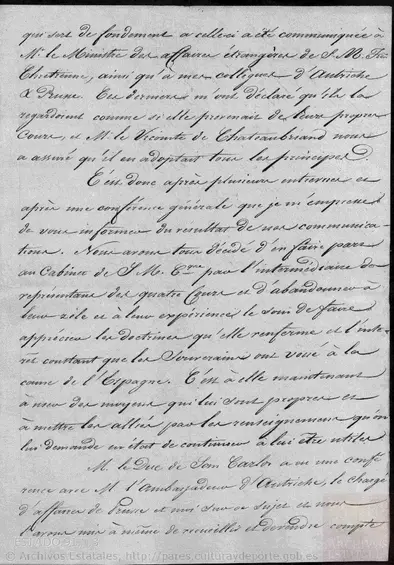 qui sert de fondement a celle-ci a été communiquée à
Mr. le Ministre des affaires étrangères de S. M. Très
Chretienne, ainsi qu'à mes collègues d'Autriche
& Prusse. Ces derniers m'ont déclaré qu'ils la
regardoient comme si elle provenoit de leurs propres
Cours, et M. le Vicomte de Chateaubriand nous
a assuré qu'il en adoptait tous les principes.
C'est donc après plusieurs entrevues et
après une conférence générale que je m'empresse
de vous informer du resultat de nos communica-
tions. Nous avons tous décidé d'en faire part
au Cabinet de S. M. Cque par l'intermédiaire des
représentans des quatre Cours et d'abandonner à
leur zèle et à leur expérience le soin de faire
apprécier les doctrines qu'elle renferme et l'inte-
rêt constant que les Souverains ont voué à la
cause de l'Espagne. C'est à elle maintenant
à user des moyens qui lui sont propres et
à mettre les alliés par les renseignemens qu'on
lui demande en état de continuer à lui être utiles
M. le Duc de San Carlos a eu une confé-
rence avec M. l'Ambassadeur d'Autriche, le chargé
d'affaires de Prusse et moi sur ce sujet et nous
l'avons mis à même de recueillir et de rendre compte
© Archivos Estatales, http://pares.culturaydeporte.gob.es